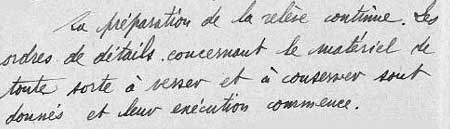 La préparation de la relève continue. Les
ordres de détails concernant le matériel de
toute sorte à verser et à conserver sont
donnés et leur exécution commence.